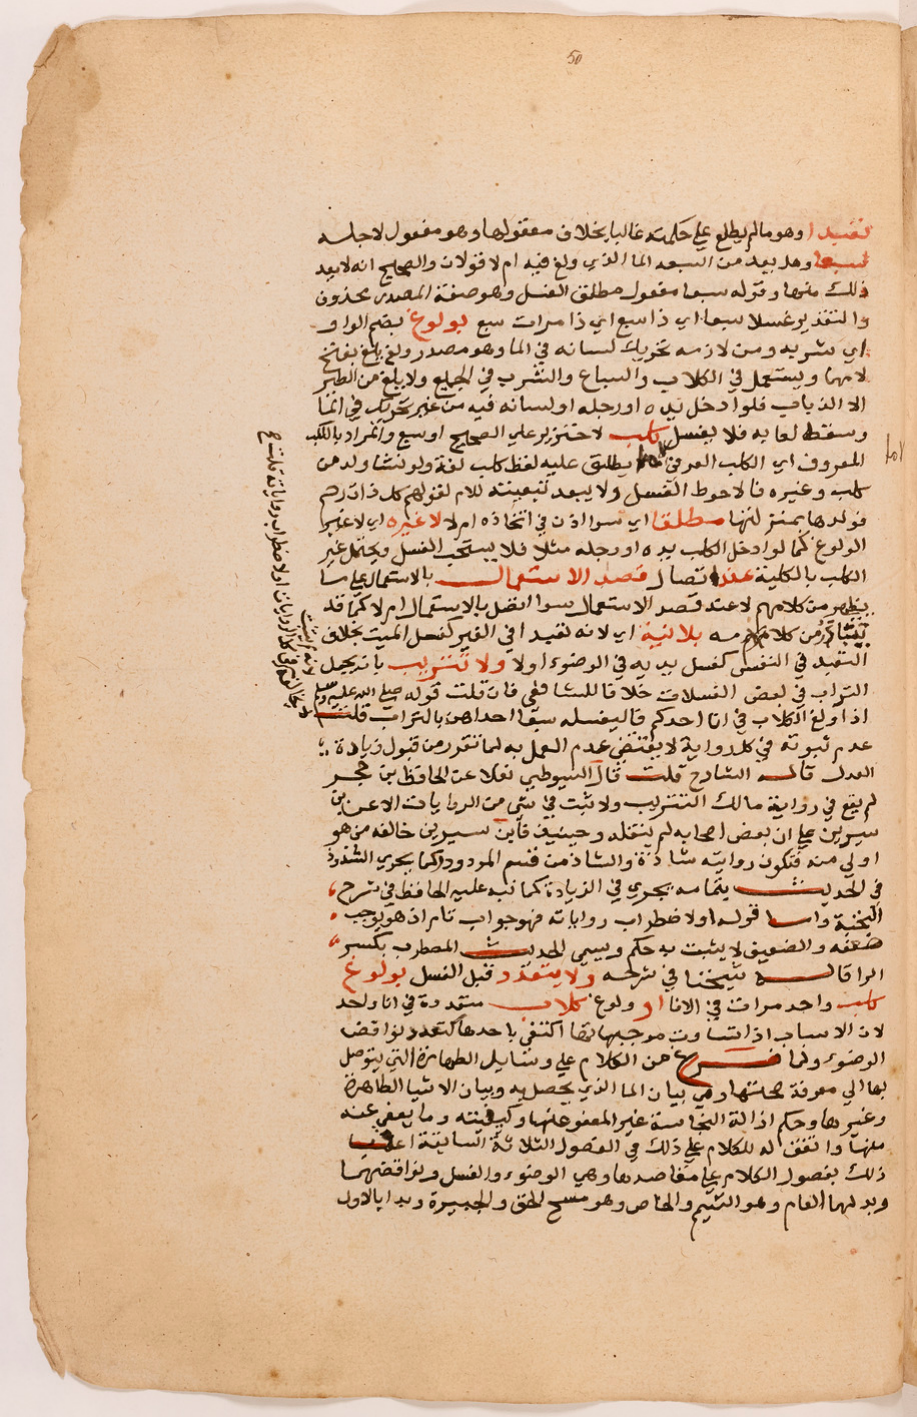 50
تعبدا وهو ما لم يطلع علي حكمته غالبا بخلاف معقولها وهو مفعول لاجله
سبعا وهل يعد من السبعه الما الذي ولغ فيه ام لا قولان والصحيح انه لا يعد
ذلك منها وقوله سبعا مفعول مطلق الغسل وهو صفة المصدر محذوف
والتقدير غسلا سبعا اي ذا سبع اي ذا مرات سبع بولوغ بضم الواو
اي شربه ومن لازمه تحريك لسانه في الما وهو مصدر ولغ يلغ بفتح
لامهما ويستعمل في الكلاب والسباع والشرب في الجميع ولا يلغ من الطير
الا الذباب فلو ادخل يده او رجله او لسانه فيه من غير تحريك في الما
وسقط لعابه فلا يغسل كلب لا خنزير علي الصحيح اوسع والمراد بالكلب
المعروف اي الكلب العرفي يطلق عليه لفظ كلب لغة ولو نشا ولد من
كلب وغيره فالاحوط الغسل ولا يبعد تبعيته للام لقولهم كل ذات رحم
فولدها بمنزلتها مطلقا اي سوا اذن في اتخاذه ام لا لا غيره اي لا غير
الولوغ كما لو ادخل الكلب يده او رجله مثلا فلا يستحب الغسل ويحتمل غير
الكلب بالكلية عند اتصال قصد الاستعمال بالاستعمال علي ما
يظهر من كلامهم لا عند قصد الاستعمال سوا اتصل بالاستعمال ام لا كما قد
يتبادر من كلامه بلا نية اي لانه تعبد في الغير كغسل الميت بخلاف
التعبد في النفس كغسل يديه في الوضوء اولا ولا تتريب بان يجعل
التراب في بعض الغسلات خلافا للشافعي فان قلت قوله صلي الله عليه وسلم
اذا ولغ الكلاب في انا احدكم فاليغسله سبعا احداهن بالتراب قلت
عدم ثبوته في كل رواية لا يقتضي عدم العمل به لما تقرر من قبول زيادة
العدل قاله الشارح قلت قال السيوطي نقلا عن الحافظ بن حجر
لم يقع في رواية مالك التتريب ولا ثبت في شي من الروايات الا عن بن
سيرين علي ان بعض اصحابه لم ينقله وحينيذ فابن سيرين خالفه من هو
اولي منه فتكون روايته شاذة والشاذ من قسم المردود وكما يجري الشذوذ
في الحديث بتمامه يجري في الزيادة كما نبه عليه الحافظ في شرح
النخبة واما قوله او لاضطراب رواياته فهو جواب تام اذ هو يوجب
ضعفه والضعيف لا يثبت به حكم ويسمي الحديث المضطرب بكسر
الرا قاله شيخنا في شرحه ولا يتعدد قبل الغسل بولوغ
كلب واحد مرات في الانا او ولوغ كلاب متعددة في انا واحد
لان الاسباب اذا تساوت موجبها اكتفي باحدها كتعدد نواقض
الوضوء ولما فرغ من الكلام علي وسايل الطهارة التي يتوصل
بها الي معرفة صحتها وهي بيان الما الذي يحصل به وبيان الاشيا الطاهرة
وغيرها وحكم ازالة النجاسة غير المعفو عنها وكيفيته وما يعفي عنه
منها واتفق له للكلام علي ذلك في الفصول الثلاثة السابقة اعقب
ذلك بفصول الكلام علي مقاصدها وهي الوضوء والغسل ونواقضهما
وبدلهما العام وهو التيمم والخاص وهو مسح الخف والجبيرة وبدا بالاول